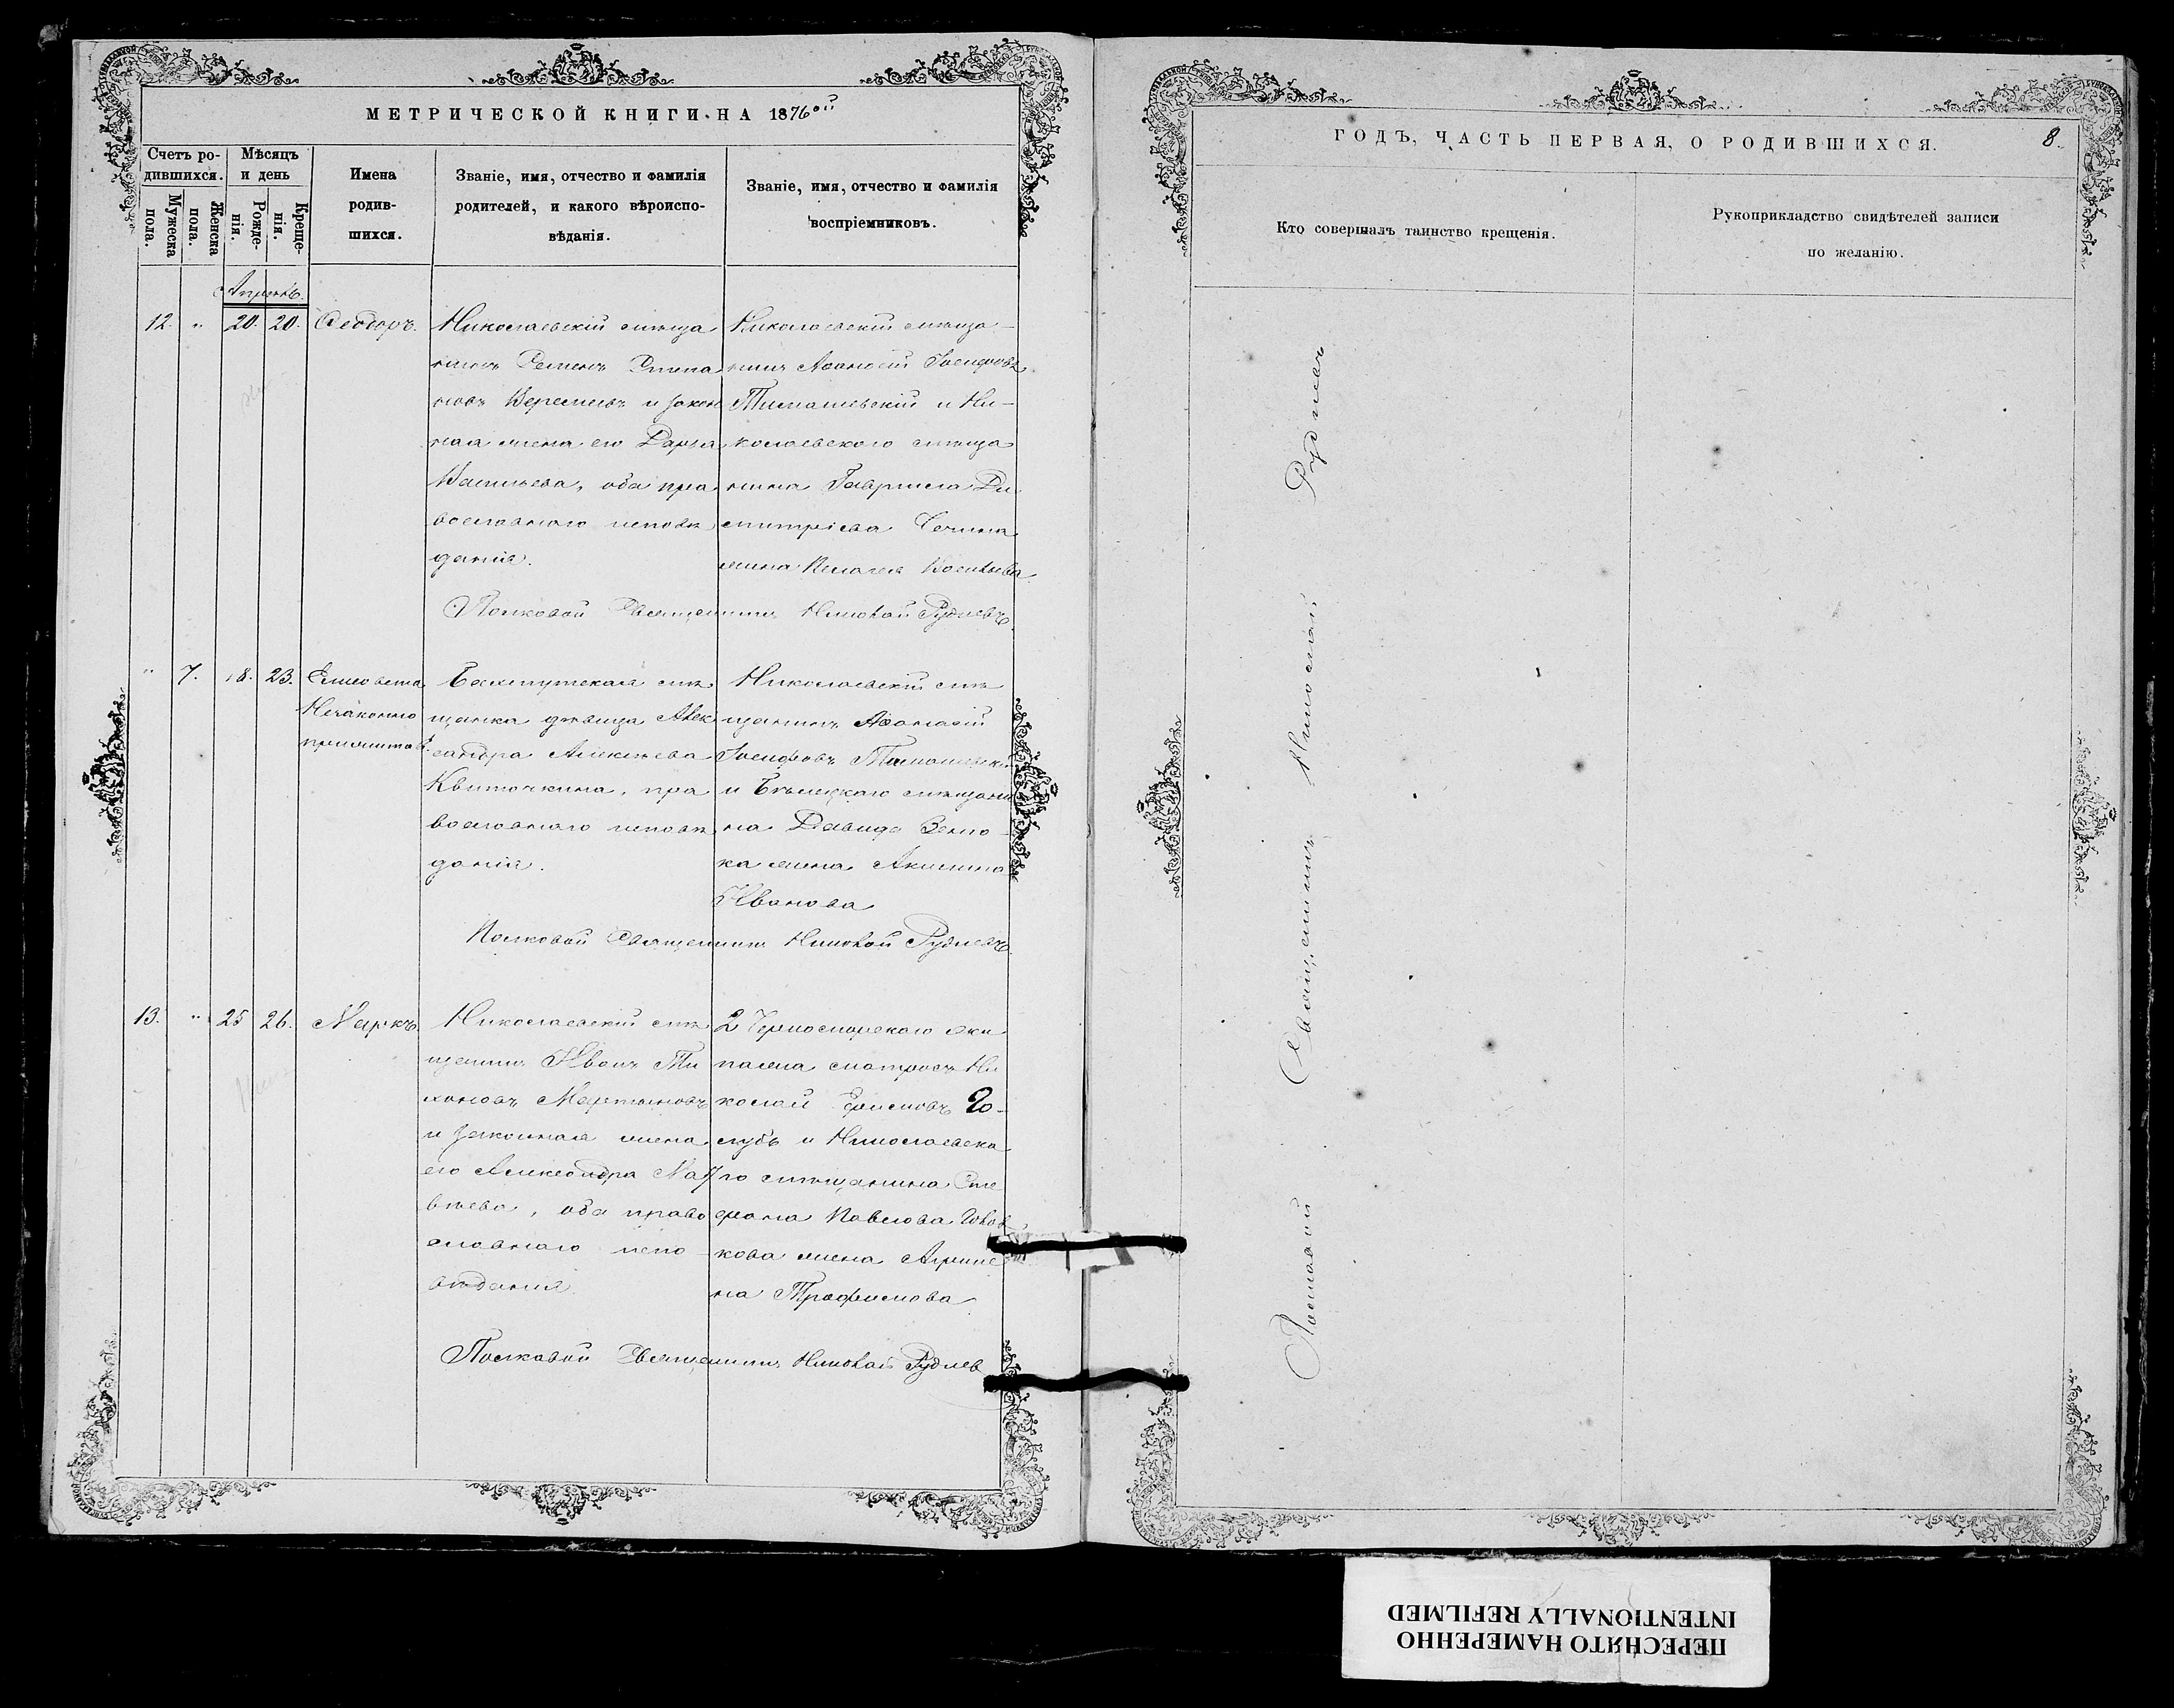 МЕТРИЧЕСКОЙ КНИГИ НА 1876ой
Счетъ ро-
дившихся.
Мужеска
пола.
Женска
пола.
Мѣсяцъ
и день
Рожде-
нія.
Креще-
нія.
Имена
родив-
шихся.
Званіе, имя, отчество и фамилія
родителей, и какого вѣроиспо-
вѣданія.
Званіе, имя, отчество и фамилія
воспріемниковъ.
Апрель.
12. " 20. 20. Ѳеодоръ.
Николаевскій мѣща
нинъ Семенъ Степа
новъ и закон
ная жена его Дарья
Васильева, оба пра
вославного исповѣ
данія.
Николаевскій мѣща-
нинъ Аѳанасій Іосифовъ
Тимашевскій и Ни-
колаевского мѣща
нина Гавриила Ди
митріева
жена Васильева
Полковой Священникъ Николай Рудневъ.
" 7. 18. 23. Елисавета
Незаконно
Бахмутская мѣ
щанка дѣвица Алек
сандра Алексѣева
Квиточкина, пра
вославного исповѣ
данія.
Николаевскій мѣ
щанинъ Аѳанасій
Іосифовъ
и мѣщани
на Давида
ка жена Акилина
Иванова
Полковой Священникъ Николай Рудневъ
13. " 25 26. Маркъ
Николаевскій мѣ
щанинъ Иванъ Ти
хоновъ Мартыновъ
и законная жена
его Александра Мат
вѣева, оба право
славного испо
вѣданія
2 Черноморского эки
пажа матросъ Ни
колай Го-
лубь и Николаевска
го мѣщанина Сте
фана Павлова
кова жена Агрипе
на Трофимова
Полковой Священникъ Николай Руднев
ГОДЪ, ЧАСТЬ ПЕРВАЯ, О РОДИВШИХСЯ.
8.
Кто совершалъ таинство крещенія.
Рукоприкладство свидѣтелей записи
по желанію.
Полковой Священникъ Николай Рудневъ
ПЕРЕСНЯТО НАМЕРЕННО
INTENTIONALLY REFILMED